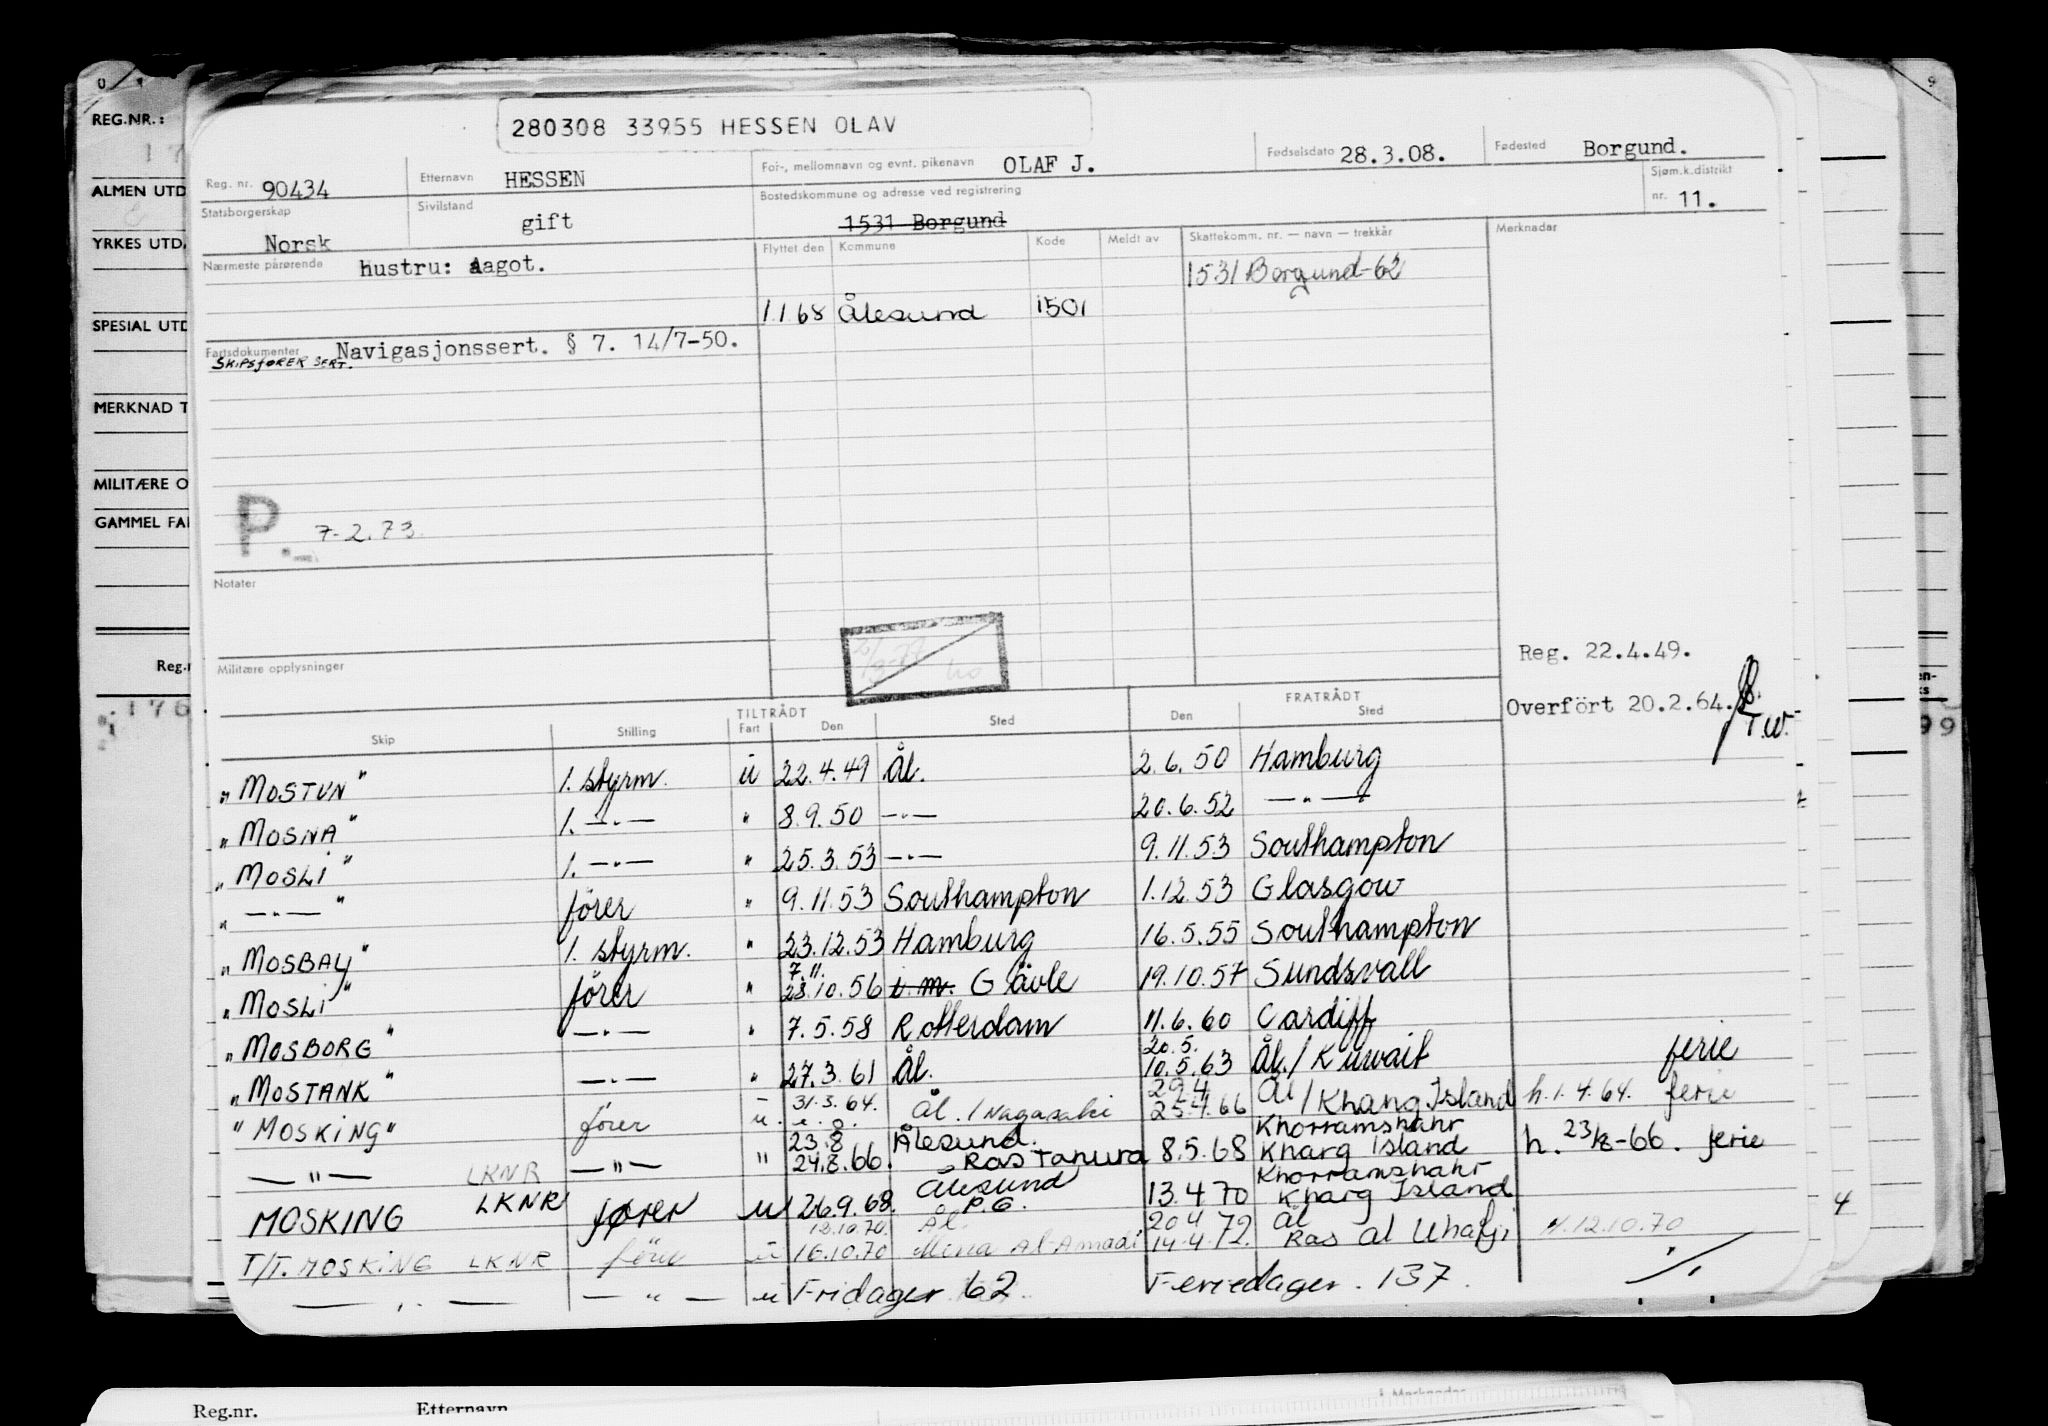 280308 33955 HESSEN OLAV
Reg. nr. 90434 Etternavn HESSEN For-, mellomnavn og evnt. pikenavn OLAF J. Fødselsdato 28.3.08. Fødested Borgund.
Statsborgerskap Norsk Sivilstand gift Bostedskommune og adresse ved registrering 1531 Borgund Sjøm.k.distrikt nr. 11.
Nærmeste pårørende Hustru: Aagot. Flyttet den Kommune Kode Meldt av Skattekomm. nr. — navn — trekkår Merknader
1531 Borgund-62
1.1.68 Ålesund 1501
Fartsdokumenter Navigasjonssert. § 7. 14/7-50.
SKIPSFØRER SERT.
P. 7.2.73.
Notater
Militære opplysninger
Reg. 22.4.49.
Overfört 20.2.64.
T.W.
TILTRÅDT FRATRÅDT
Skip Stilling Fart Den Sted Den Sted
"MOSTUN" 1. styrm. u 22.4.49 Ål. 2.6.50 Hamburg
"MOSNA" 1. —"— " 8.9.50 —"— 20.6.52 —"—
"MOSLI" 1. —"— " 25.3.53 —"— 9.11.53 Southampton
" —"— " förer " 9.11.53 Southampton 1.12.53 Glasgow
"MOSBAY" 1. styrm. " 23.12.53 Hamburg 16.5.55 Southampton
7.11.
"MOSLI" förer " 28.10.56 u.m. Gävle 19.10.57 Sundsvall
"MOSBORG" —"— " 7.5.58 Rotterdam 11.6.60 Cardiff
20.5.
"MOSTANK" —"— " 27.3.61 Ål. 10.5.63 Ål./Kuwait ferie
31.3.64. 29.4 Ål
"MOSKING" förer u. Ål./Nagasaki 25.4.66 /Kharg Island h. 1.4.64. ferie
23.8 Ålesund. Khorramshahr
—"— LKNR —"— " 24.8.66. Ras Tanura 8.5.68 Kharg Island h. 23/8-66. ferie
Ålesund Khorramshahr
MOSKING LKNR fører u 26.9.68 P.G. 13.4.70 Kharg Island
12.10.70. Ål. 20.4 Ål
T/T. MOSKING LKNR förer u 16.10.70 Mina Al-Amadi 14.4.72. Ras al Khafji h. 12.10.70
—"— —"— u Fridager 62 Feriedager. 137.
REG.NR.:
17
ALMEN UTD
YRKES UTD
SPECIAL UTD
MERKNAD T
MILITÆRE O
GAMMEL FA
Reg.n
176
99
4
Reg.nr. Etternavn